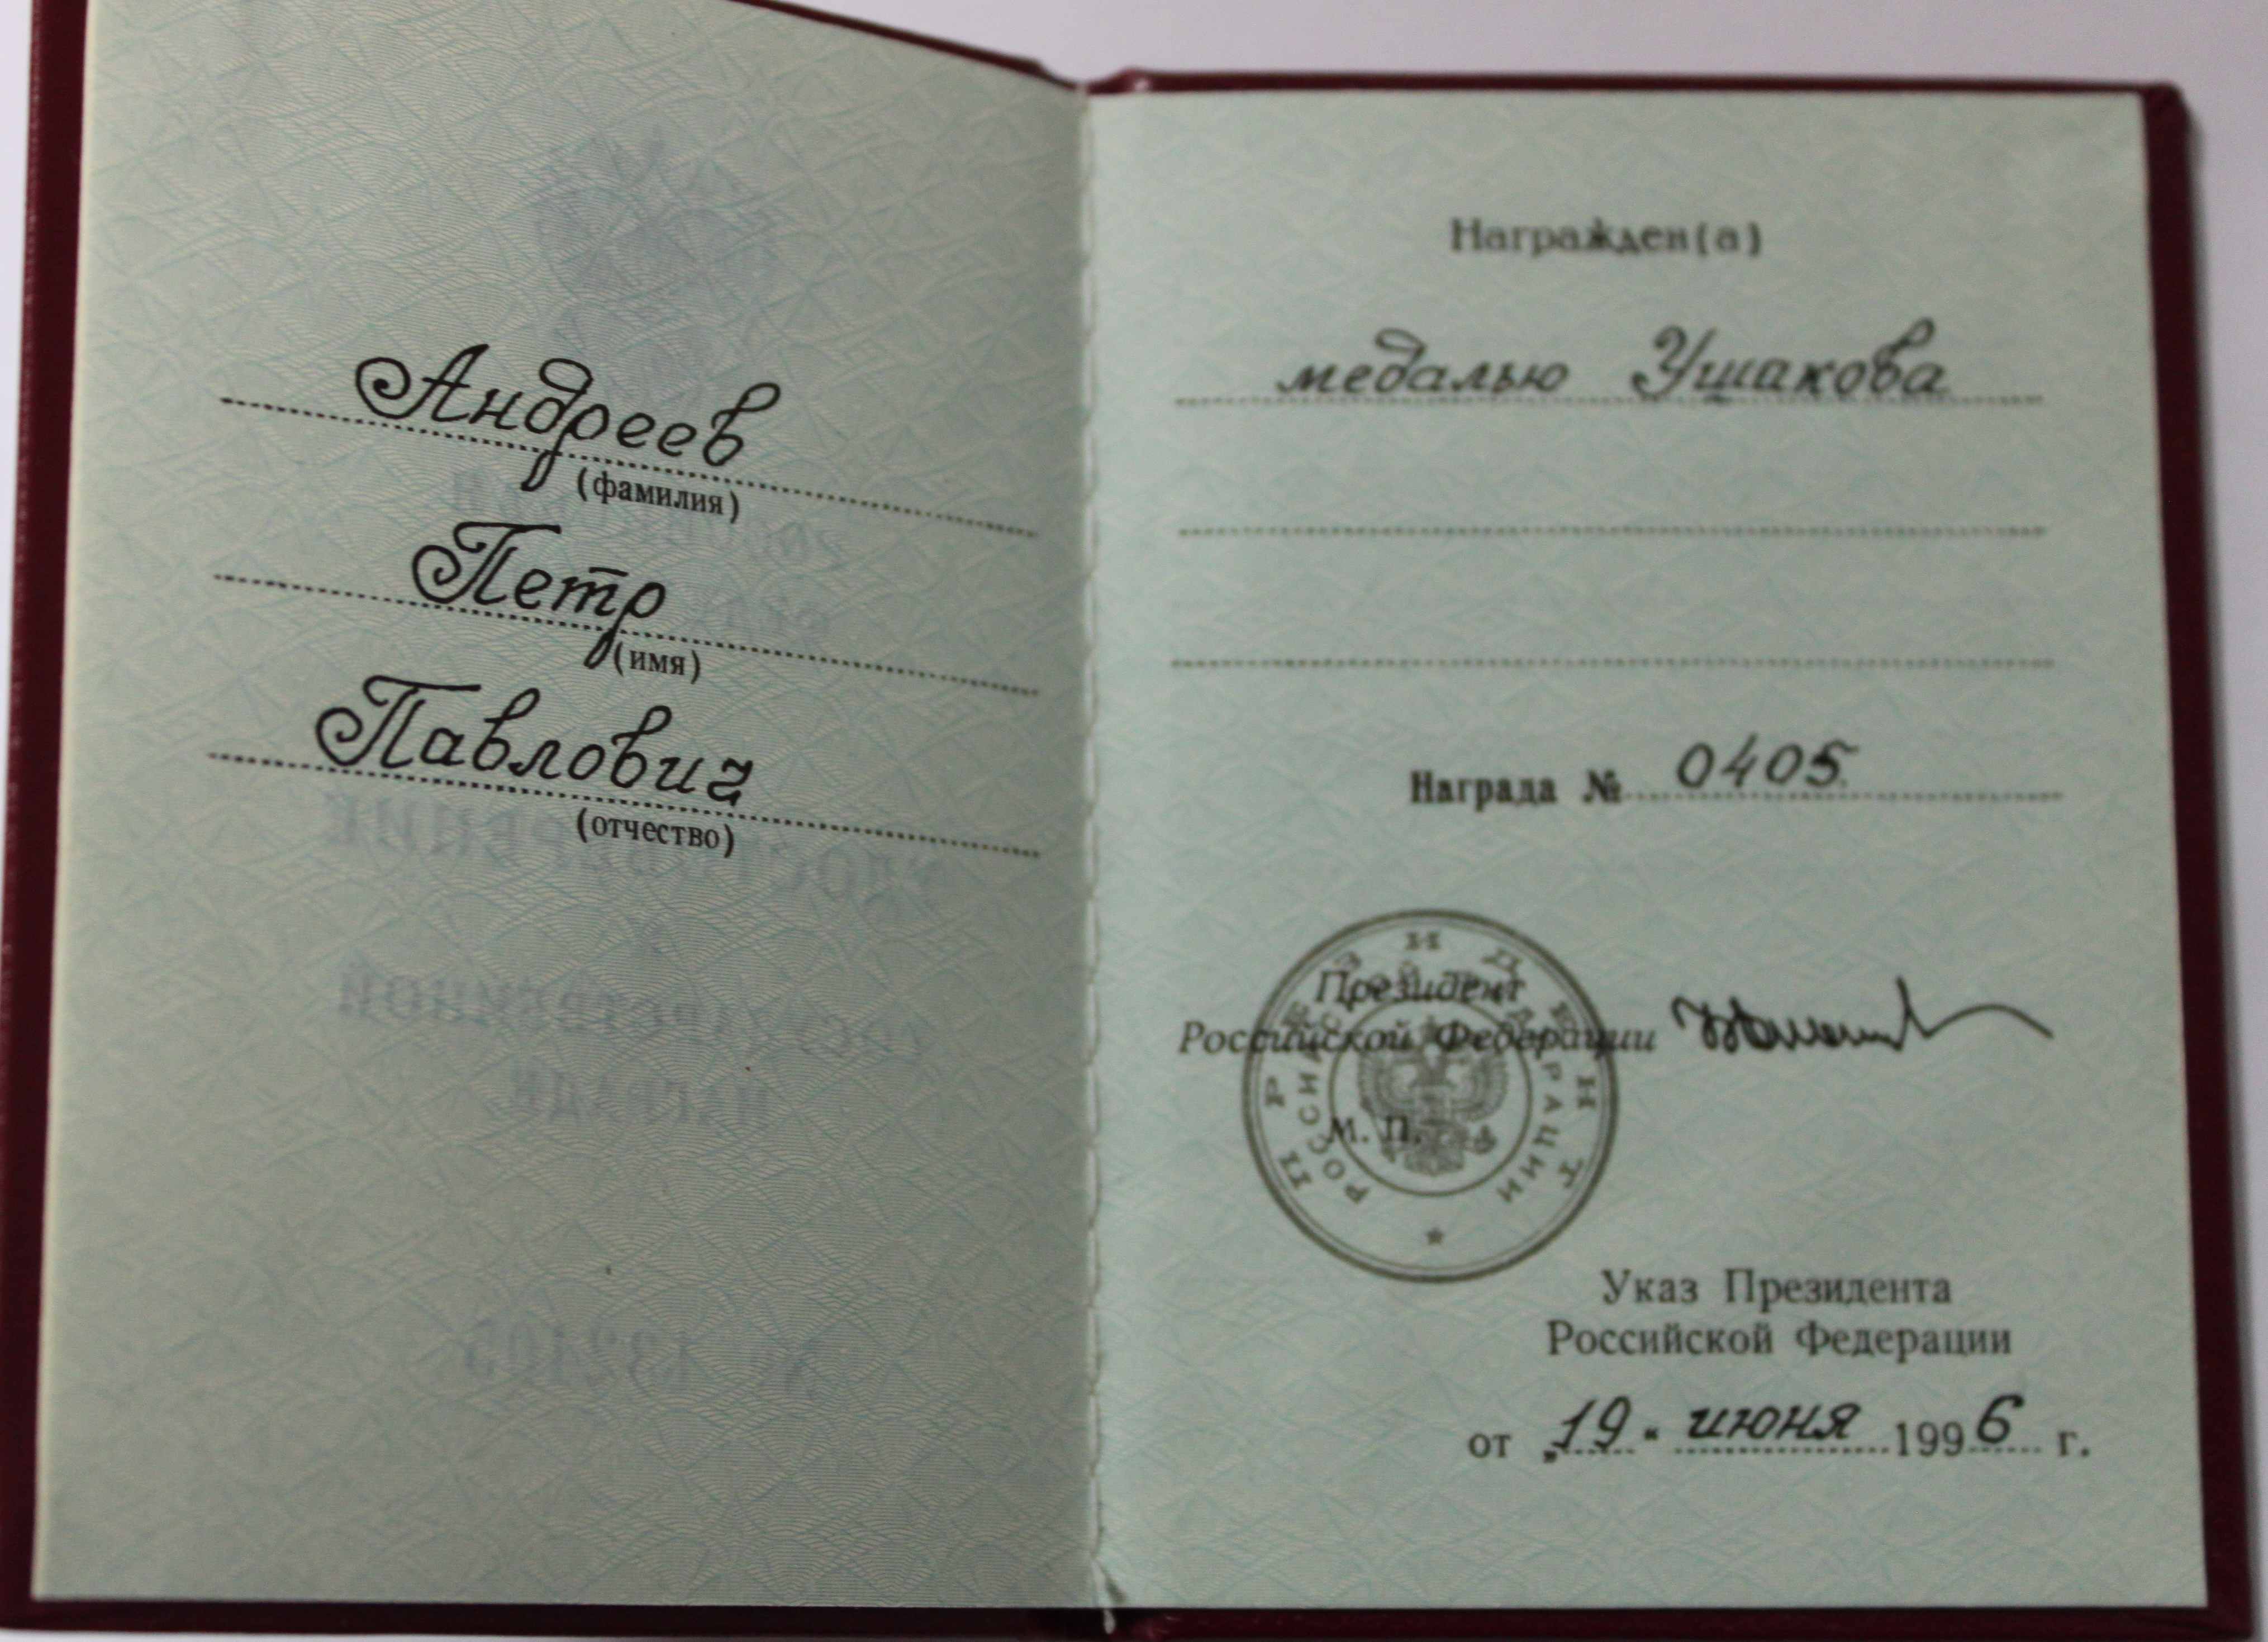 Андреев
(фамилия)
Петр
(имя)
Павлович
(отчество)
Награжден(а)
медалью Ушакова
Награда № 0405
Президент
Российской Федерации
М. П.
ПРЕЗИДЕНТ
РОССИЙСКОЙ ФЕДЕРАЦИИ
Указ Президента
Российской Федерации
от „19“ июня 1996 г.